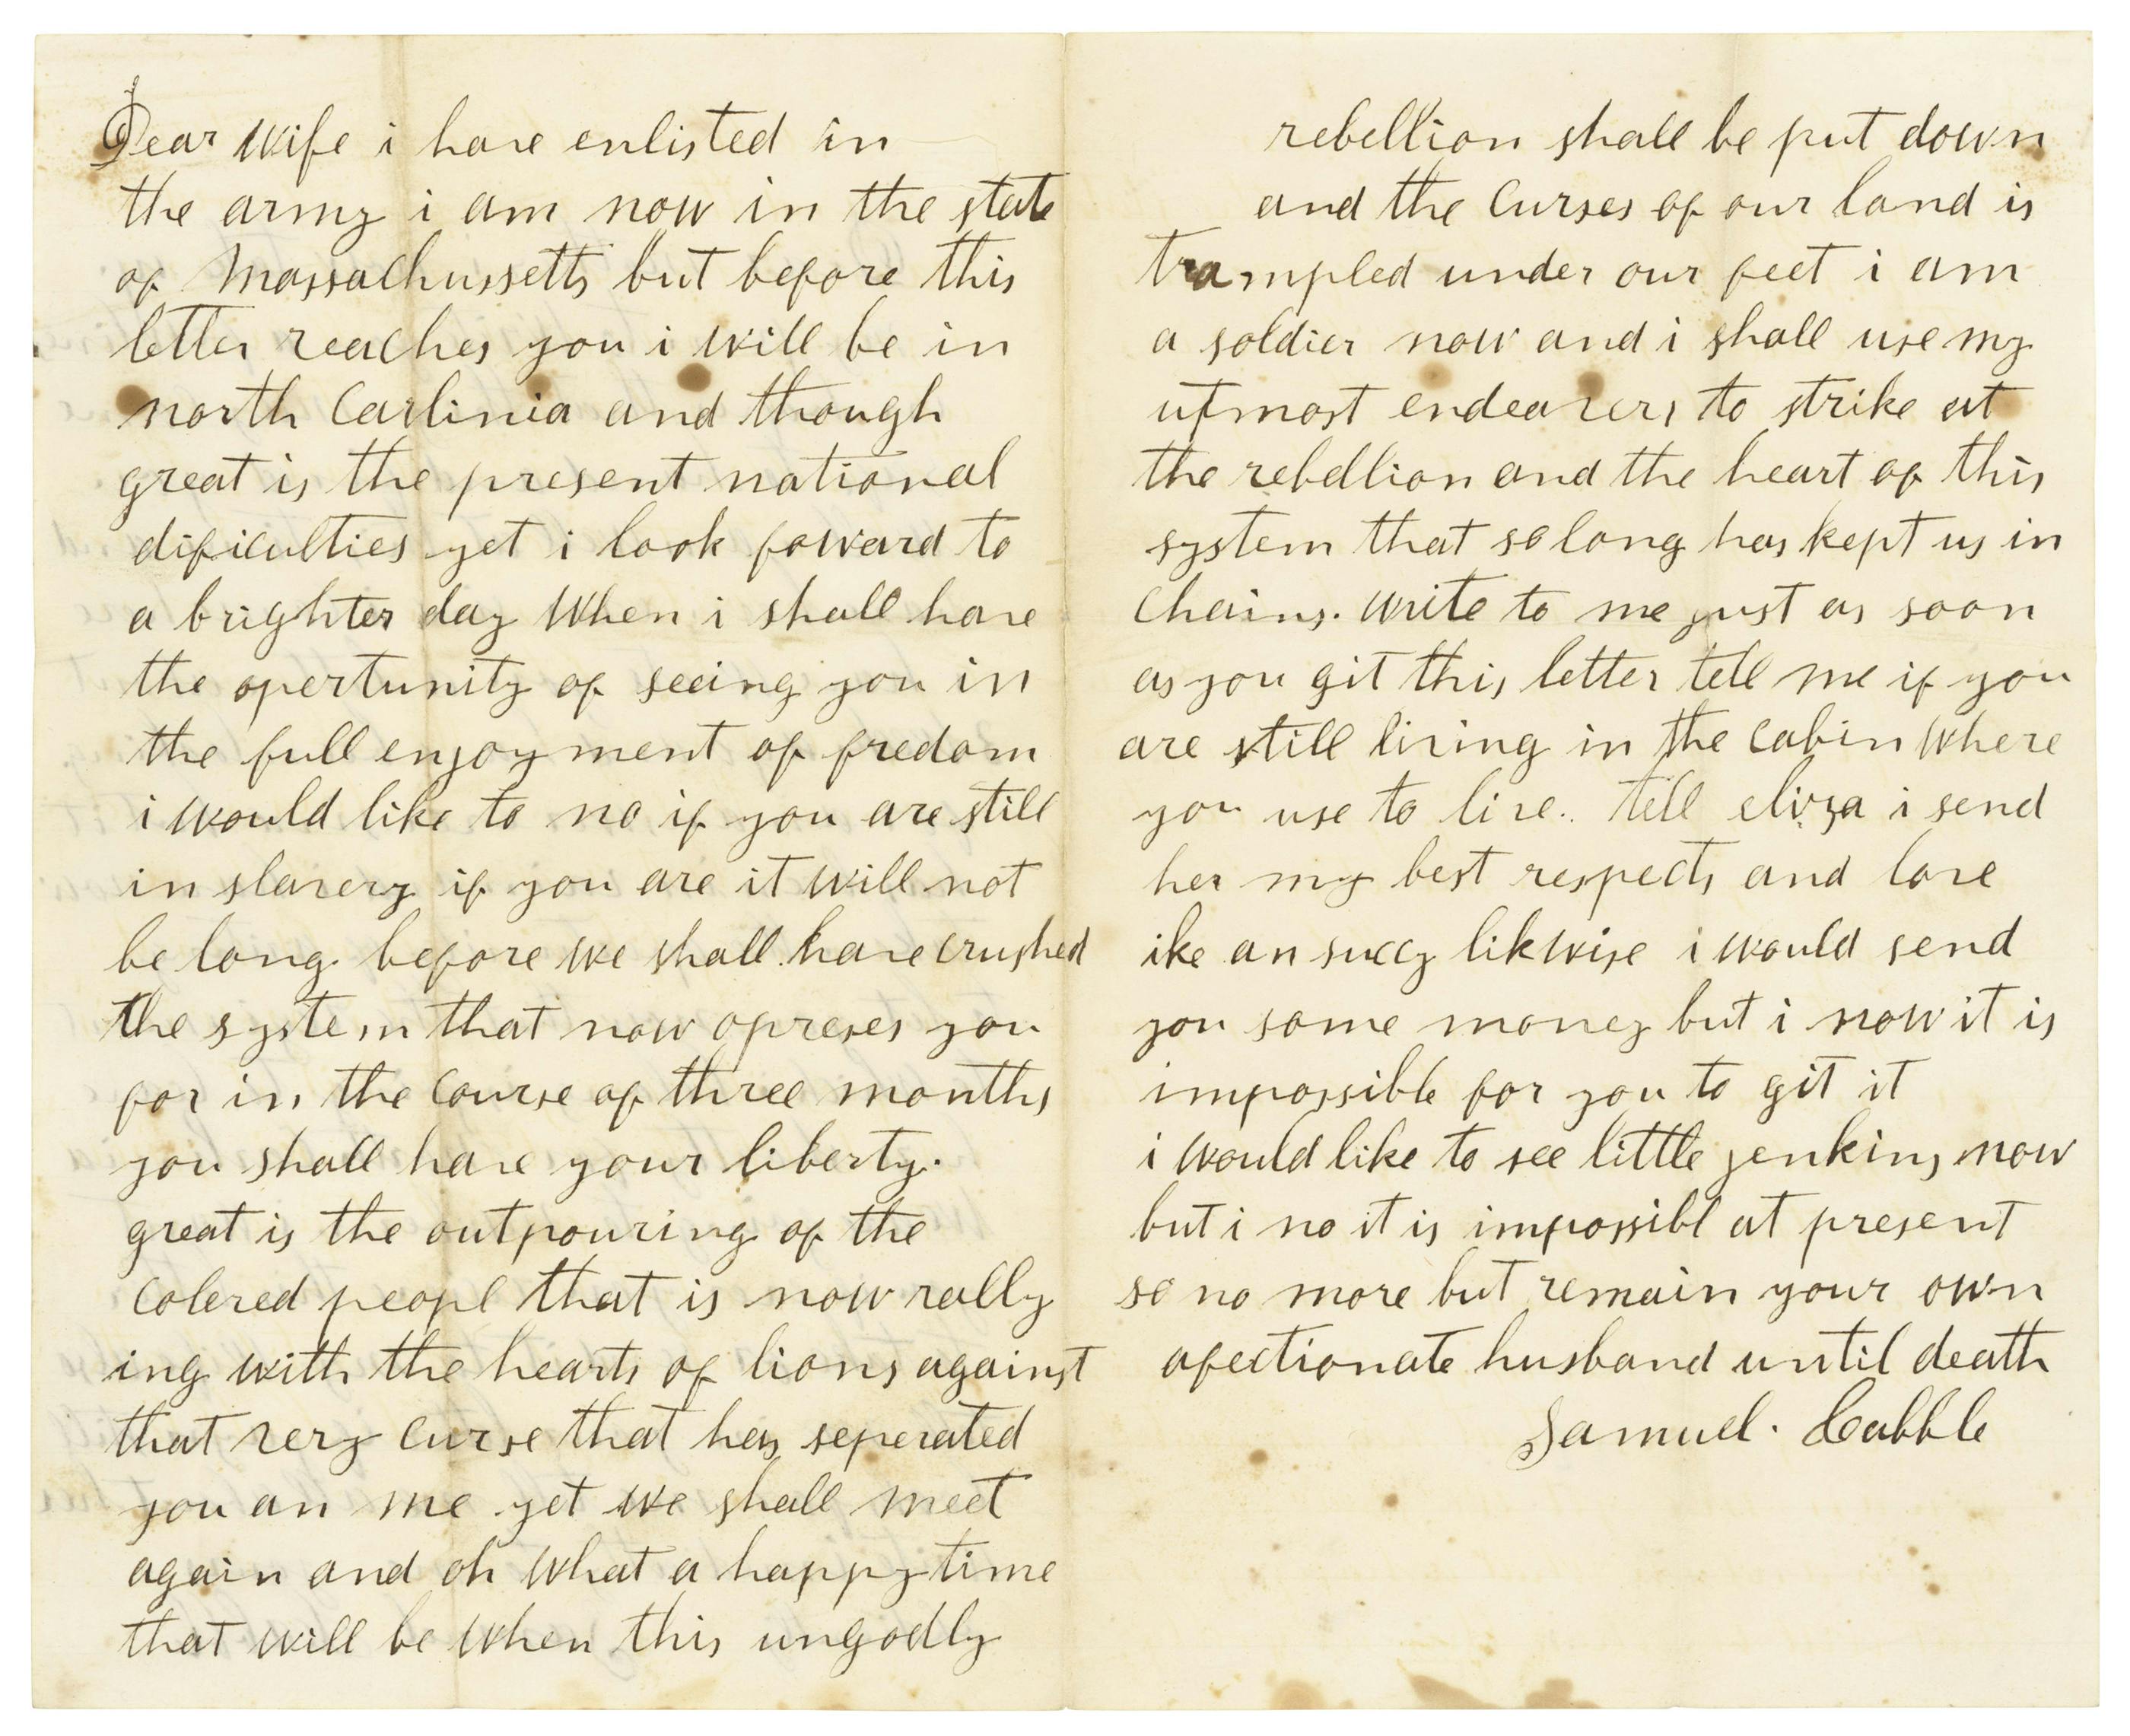 Dear Wife i have enlisted in
the army i am now in the state
of Massachussetts but before this
letter reaches you i will be in
north Carlinia and though
great is the present national
dificulties yet i look foward to
a brighter day When i shall have
the opertunity of seeing you in
the full enjoyment of fredom
i would like to no if you are still
in slavery if you are it will not
be long before we shall have crushed
the system that now opreses you
for in the course of three months
you shall have your liberty.
great is the outpouring of the
colered peopl that is now rally
ing with the hearts of lions against
that very curse that has seperated
you an me yet we shall meet
again and oh what a happy time
that will be when this ungodly
rebellion shall be put down
and the curses of our land is
trampled under our feet i am
a soldier now and i shall use my
utmost endeavers to strike at
the rebellion and the heart of this
system that so long has kept us in
chains. write to me just as soon
as you git this letter tell me if you
are still living in the cabin where
you use to live.. tell eliza i send
her my best respects and love
ike an succy likwise i would send
you some money but i now it is
impossible for you to git it
i would like to see little jenkins now
but i no it is impossibl at present
so no more but remain your own
afectionate husband until death
Samuel. Cabble